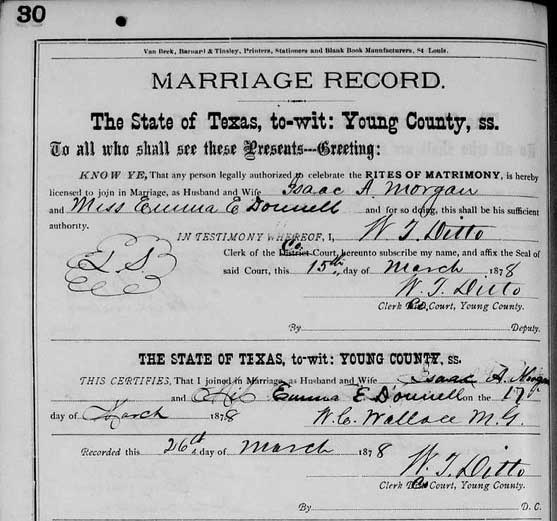 30
Van Beek, Barnard & Tinsley, Printers, Stationers and Blank Book Manufacturers, St Louis.
MARRIAGE RECORD.
The State of Texas, to-wit: Young County, ss.
To all who shall see these Presents---Greeting:
KNOW YE, That any person legally authorized to celebrate the RITES OF MATRIMONY, is hereby
licensed to join in Marriage, as Husband and Wife Isaac A. Morgan
and Miss Emma E Donnell and for so doing, this shall be his sufficient
authority.
IN TESTIMONY WHEREOF, I, W. T. Ditto
L. S.
Clerk of the District Co. Court, hereunto subscribe my name, and affix the Seal of
said Court, this 15th day of March 1878
W. T. Ditto
Clerk Co. Court, Young County.
By Deputy.
THE STATE OF TEXAS, to-wit: YOUNG COUNTY, ss.
THIS CERTIFIES, That I joined in Marriage, as Husband and Wife Isaac A. Morgan
and Emma E. Donnell on the 17
day of March 1878 W. C. Wallace M. G.
Recorded this 26th day of March 1878
W. T. Ditto
Clerk Co Court, Young County.
By D. C.